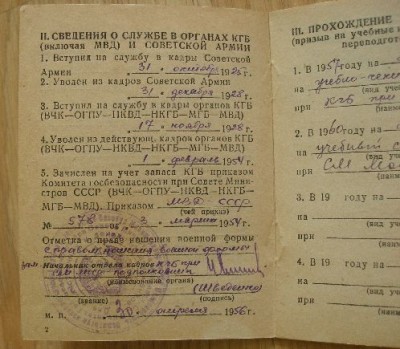 II. СВЕДЕНИЯ О СЛУЖБЕ В ОРГАНАХ КГБ
(включая МВД) И СОВЕТСКОЙ АРМИИ
1. Вступил на службу в кадры Советской
Армии 31 октября 1925 г.
2. Уволен из кадров Советской Армии
31 декабря 1928 г.
3. Вступил на службу в кадры органов КГБ
(ВЧК—ОГПУ—НКВД—НКГБ—МГБ—МВД)
17 ноября 1928 г.
4. Уволен из действующ. кадров органов КГБ
(ВЧК—ОГПУ—НКВД—НКГБ—МГБ—МВД)
1 февраль 1954 г.
5. Зачислен на учет запаса КГБ приказом
Комитета госбезопасности при Совете Мини-
стров СССР (ВЧК—ОГПУ—НКВД—НКГБ—
МГБ—МВД). Приказом МВД СССР
(чей приказ)
№ 578 3 марта 1954 г.
Отметка о праве ношения военной формы
с правом ношения военной формы
Начальник отдела кадров КГБ при
подполковник
(наименование органа)
(звание) (подпись)
м. п. 30 апреля 1956 г.
2
III. ПРОХОЖДЕНИЕ
(призыва на учебные
переподгото
1. В 1957 году на
учебно-
(вид уч
при КГБ при
2. В 1960 году на
учебный с
(вид уч
при СМ
3. В 19 году на
(вид учеб
при
4. В 19 году на
(вид учеб
при